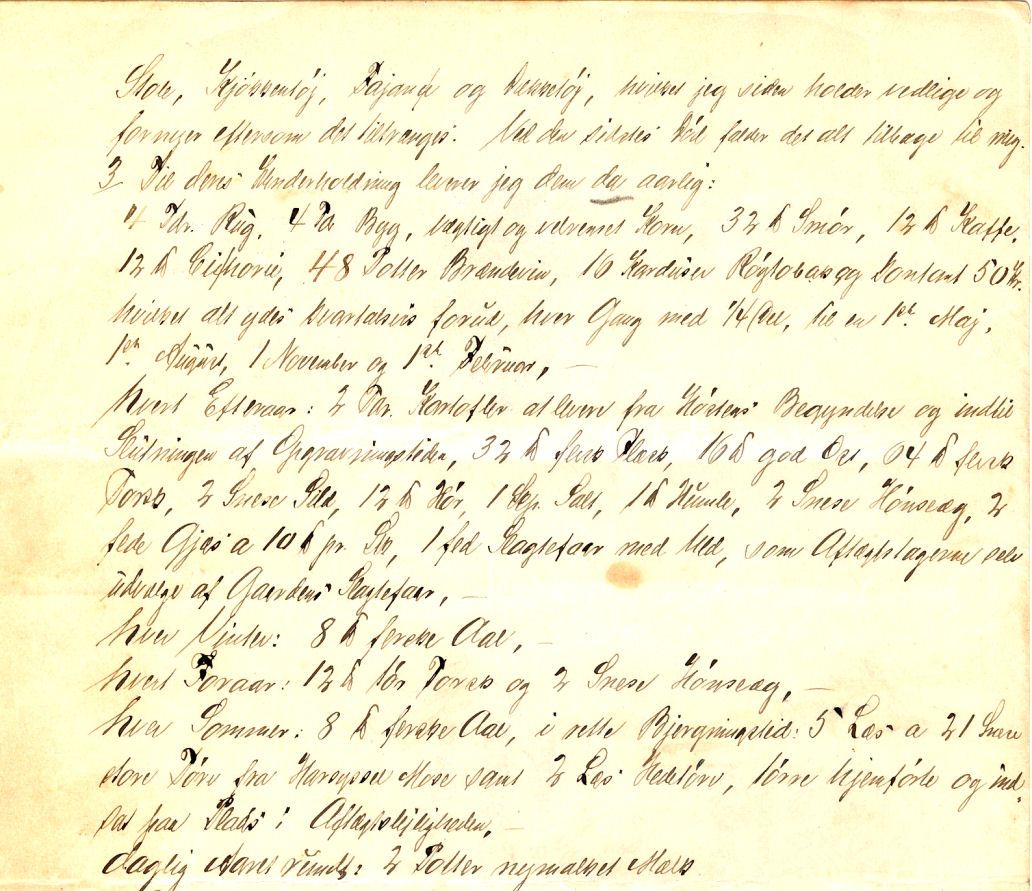 Stole, Kjøkkentøj, Fajance og Dækketøj, hvilket jeg siden holder vedlige og
fornyer eftersom det tiltrænges. Ved den sidstes Død falder det alt tilbage til mig.
3 Til deres Underholdning leverer jeg dem da aarlig:
4 Tdr. Rug, 4 Td Byg, vægtigt og velrenset Korn, 32 ℔ Smør, 12 ℔ Kaffe,
12 ℔ Cichorie, 48 Potter Brændevin, 16 Karduser Røgtobak og kontant 50 Kr.
hvilket alt ydes kvartalsvis forud, hver Gang med 1/4 Del, til en 1ste Maj,
1ste August, 1 November og 1ste Februar, —
hvert Efteraar: 2 Tdr. Kartofler at levere fra Høstens Begyndelse og indtil
Slutningen af Opgravningstiden, 32 ℔ fersk Flæsk, 16 ℔ god Ost, 64 ℔ fersk
Torsk, 2 Snese Sild, 12 ℔ Hør, 1 Skp. Salt, 1 ℔ Humle, 2 Snese Hønseæg, 2
fede Gjæs a 10 ℔ pr. Stk, 1 fed Slagtefaar med Uld, som Aftægtstagerne selv
udvælge af Gaardens Slagtefaar, —
hver Vinter: 8 ℔ ferske Aal, —
hvert Foraar: 12 ℔ tør Torsk og 2 Snese Hønseæg, —
hver Sommer: 8 ℔ ferske Aal, i rette Bjergningstid: 5 Læs a 21 Snese
store Tørv fra Mose samt 2 Læs Hedetørv, tørre hjemførte og ind-
sat paa Plads i Aftægtslejligheden, —
daglig Aaret rundt: 2 Potter nymalket Mælk